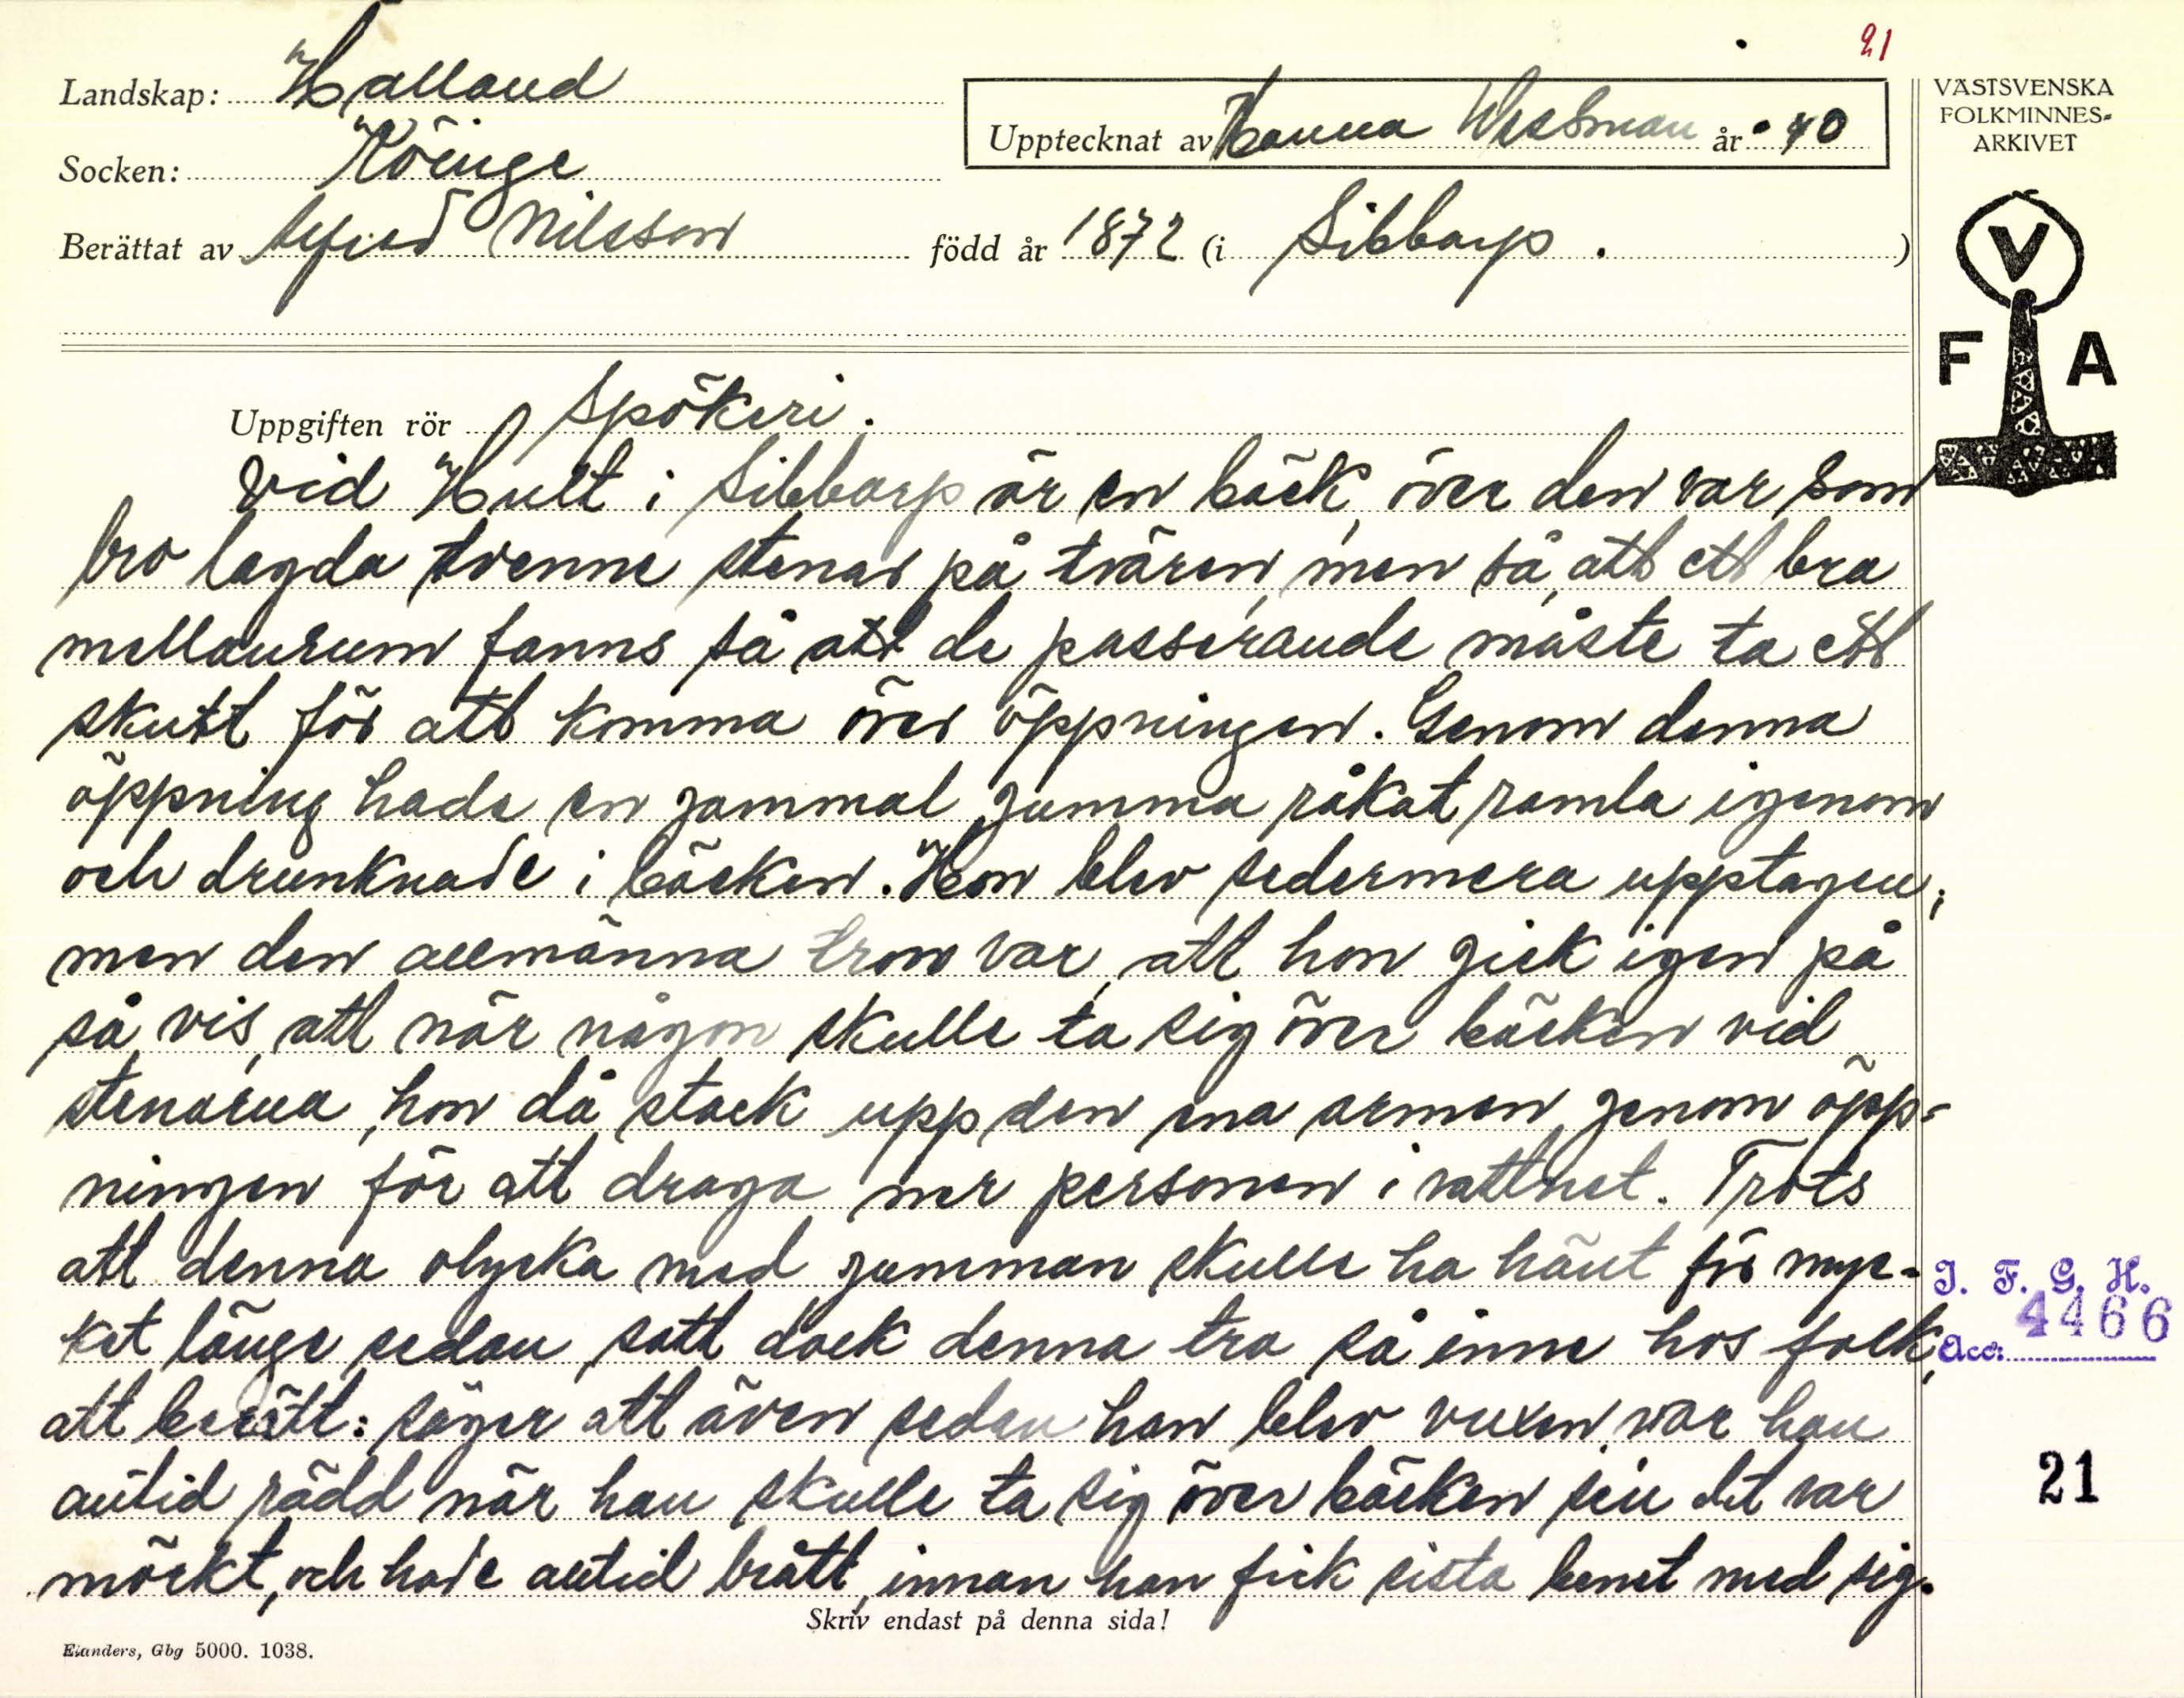 21
Landskap: Halland
Upptecknat av Hanna Wessman år 40
Socken: Köinge
Berättat av Alfred Nilsson född år 1872 (i Sibbarp . )
VÄSTSVENSKA
FOLKMINNES-
ARKIVET
V
F A
Uppgiften rör Spökeri.
Vid Hult i Sibbarp är en bäck, över den var som
bro lagda tvenne stenar på tvären, men så, att ett bra
mellanrum fanns så att de passerande måste ta ett
skutt för att komma över öppningen. Genom denna
öppning hade en gammal gumma råkat ramla igenom
och drunknade i bäcken. Hon blev sedermera upptagen,
men den allmänna tron var, att hon gick igen på
så vis, att när någon skulle ta sig över bäcken vid
stenarna, hon då stack upp den ena armen genom öpp-
ningen för att draga ner personen i vattnet. Trots
att denna olycka med gumman skulle ha hänt för myc-
ket länge sedan, satt dock denna tro så inne hos folk,
att berätt: säger att även sedan han blev vuxen, var han
alltid rädd när han skulle ta sig över bäcken sen det var
mörkt, och hade alltid brått, innan han fick sista benet med sig.
I. F. G. H.
4466
Acc:
21
Skriv endast på denna sida!
Elanders, Gbg 5000. 1038.